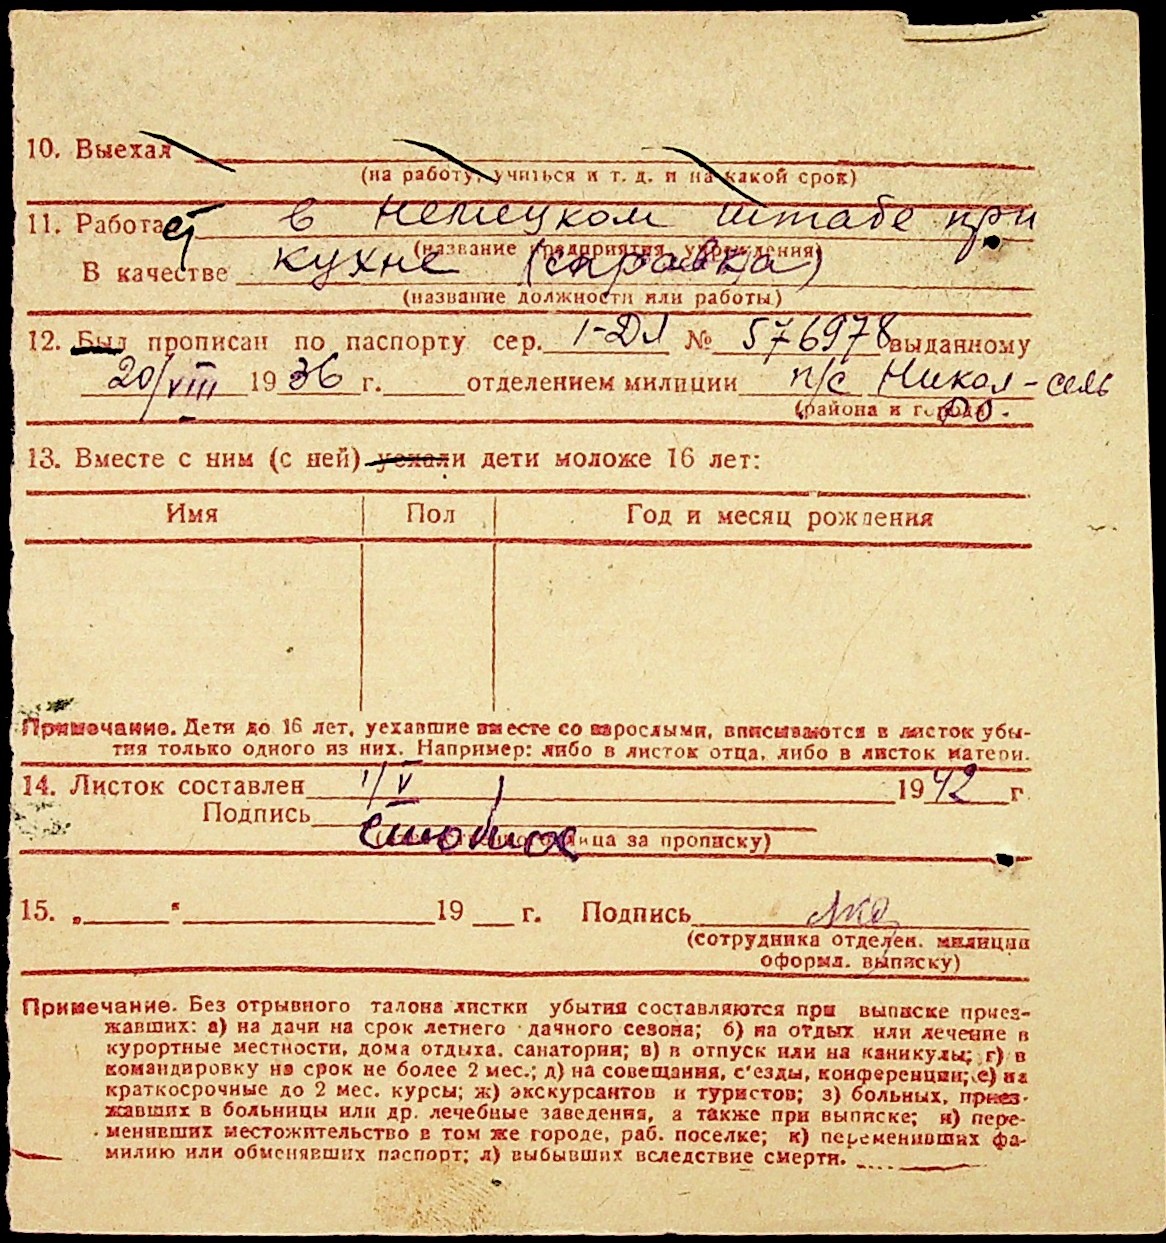 10. Выехал
(на работу, учиться и т. д. и на какой срок)
11. Работает в немецком штабе при
(название предприятия, учреждения)
В качестве кухне (справка)
(название должности или работы)
12. Был прописан по паспорту сер. 1-ДЛ № 576978 выданному
20/VIII 1936 г. отделением милиции п/с Никол-сель
(района и города)
13. Вместе с ним (с ней) уехали дети моложе 16 лет:
Имя Пол Год и месяц рождения
Примечание. Дети до 16 лет, уехавшие вместе со взрослыми, вписываются в листок убы-
тия только одного из них. Например: либо в листок отца, либо в листок матери.
14. Листок составлен 1/V 1942 г
Подпись
лица за прописку)
15. „ " 19 г. Подпись
(сотрудника отделен. милиции
оформл. выписку)
Примечание. Без отрывного талона листки убытия составляются при выписке приез-
жавших: а) на дачи на срок летнего дачного сезона; б) на отдых или лечение в
курортные местности, дома отдыха, санатория; в) в отпуск или на каникулы; г) в
командировку на срок не более 2 мес.; д) на совещания, с'езды, конференции; е) на
краткосрочные до 2 мес. курсы; ж) экскурсантов и туристов; з) больных, приез-
жавших в больницы или др. лечебные заведения, а также при выписке; и) пере-
менивших местожительство в том же городе, раб. поселке; к) переменивших фа-
милию или обменявших паспорт; л) выбывших вследствие смерти.